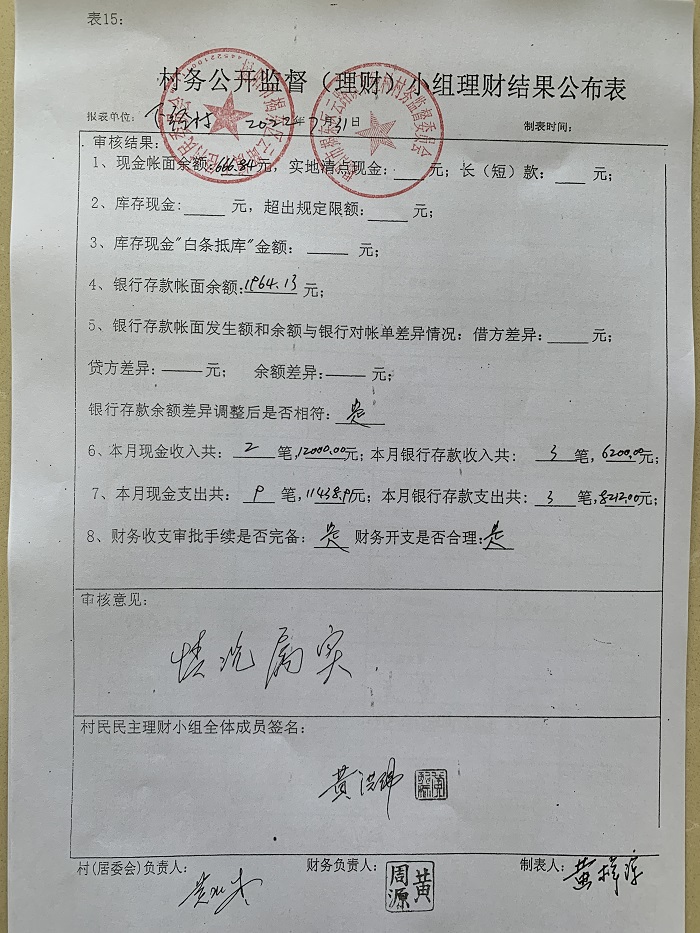 表15:
村务公开监督（理财）小组理财结果公布表
报表单位: 2022年7月31日 制表时间:
审核结果:
1、现金帐面余额:666.84元，实地清点现金:——元；长（短）款:——元;
2、库存现金:——元，超出规定限额:——元;
3、库存现金"白条抵库"金额: ——元;
4、银行存款帐面余额:1964.13元;
5、银行存款帐面发生额和余额与银行对帐单差异情况: 借方差异:——元;
贷方差异:——元; 余额差异:——元;
银行存款余额差异调整后是否相符: 是
6、本月现金收入共: 2笔,12000.00元; 本月银行存款收入共: 3笔,6200.00元;
7、本月现金支出共: 9笔,11438.91元; 本月银行存款支出共: 3笔,8212.00元;
8、财务收支审批手续是否完备: 是 财务开支是否合理:是
审核意见:
情况属实
村民民主理财小组全体成员签名:
黄洪
村(居委会)负责人: 财务负责人: 黄周源 制表人: 黄梓